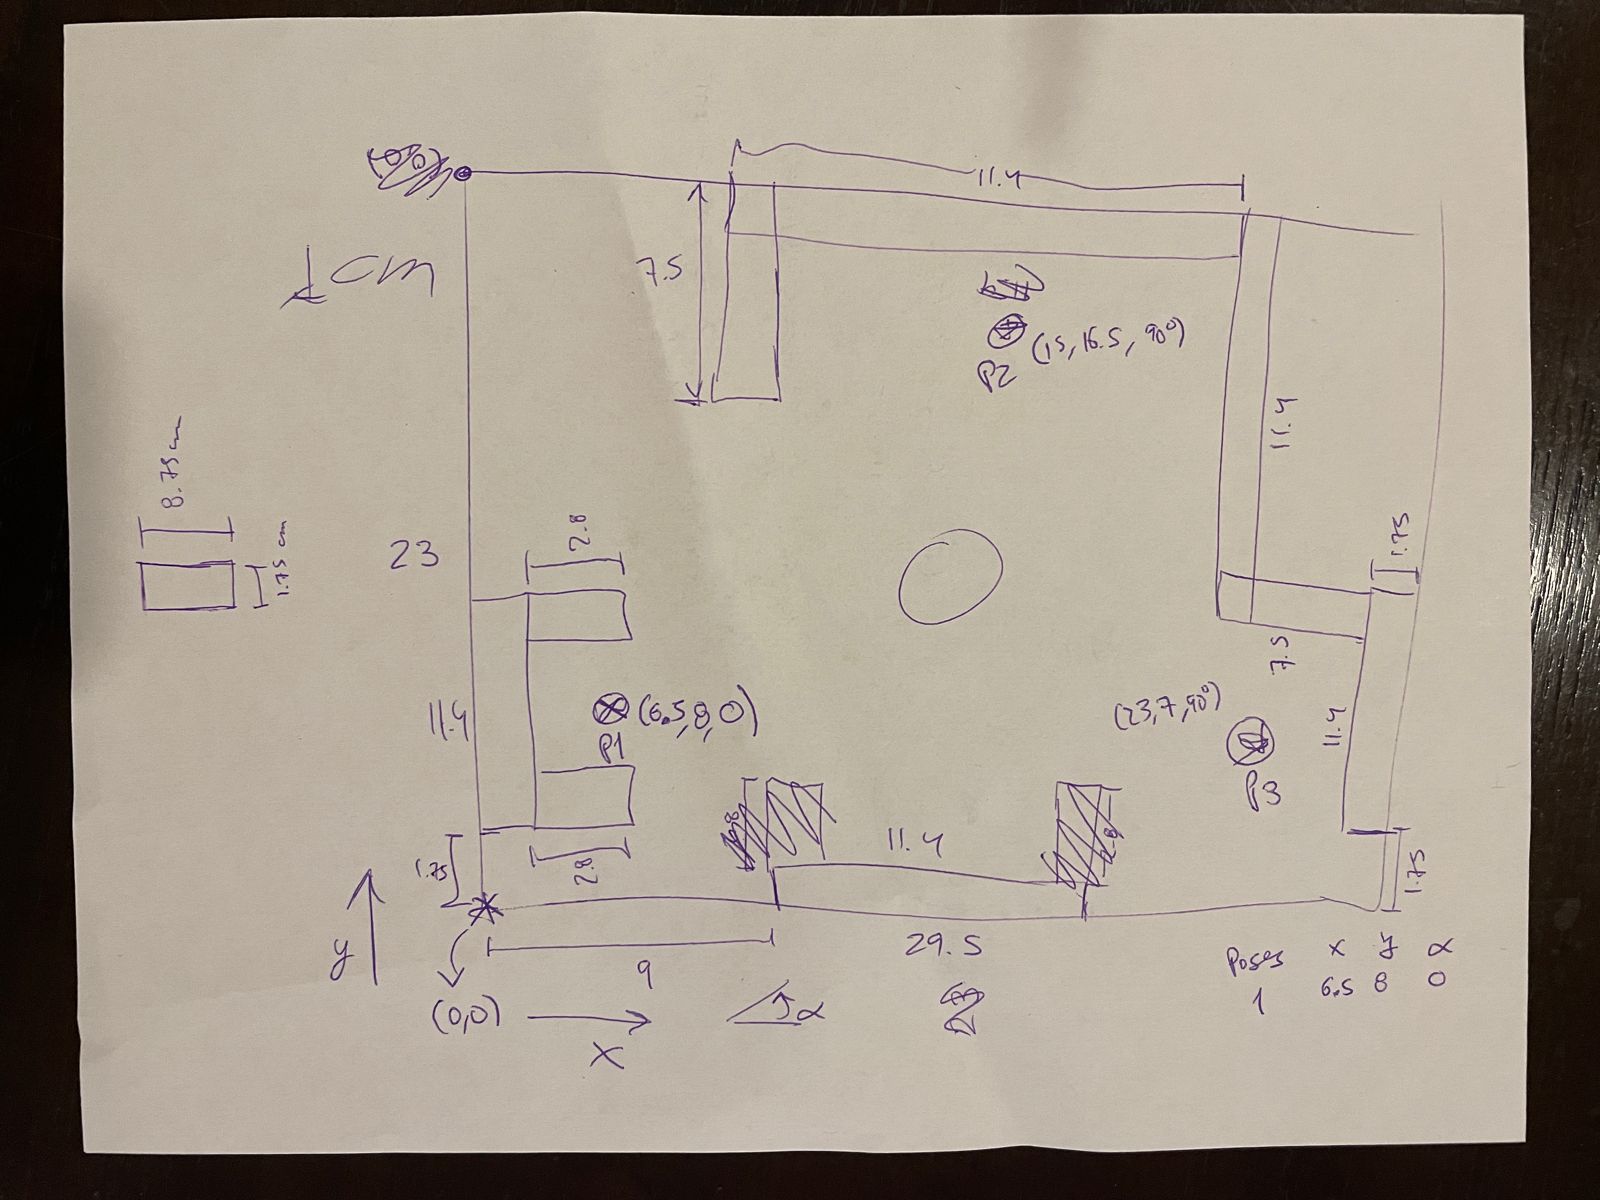 11.4
1 cm
7.5
(15, 16.5, 90°)
P2
11.4
8.75 cm
1.75 cm
23
2.8
1.75
7.5
11.4
(6.5, 8, 0)
P1
(23, 7, 90°)
11.4
P3
11.4
1.75
2.8
1.75
y
9
29.5
(0,0)
x
α
Poses x y α
1 6.5 8 0